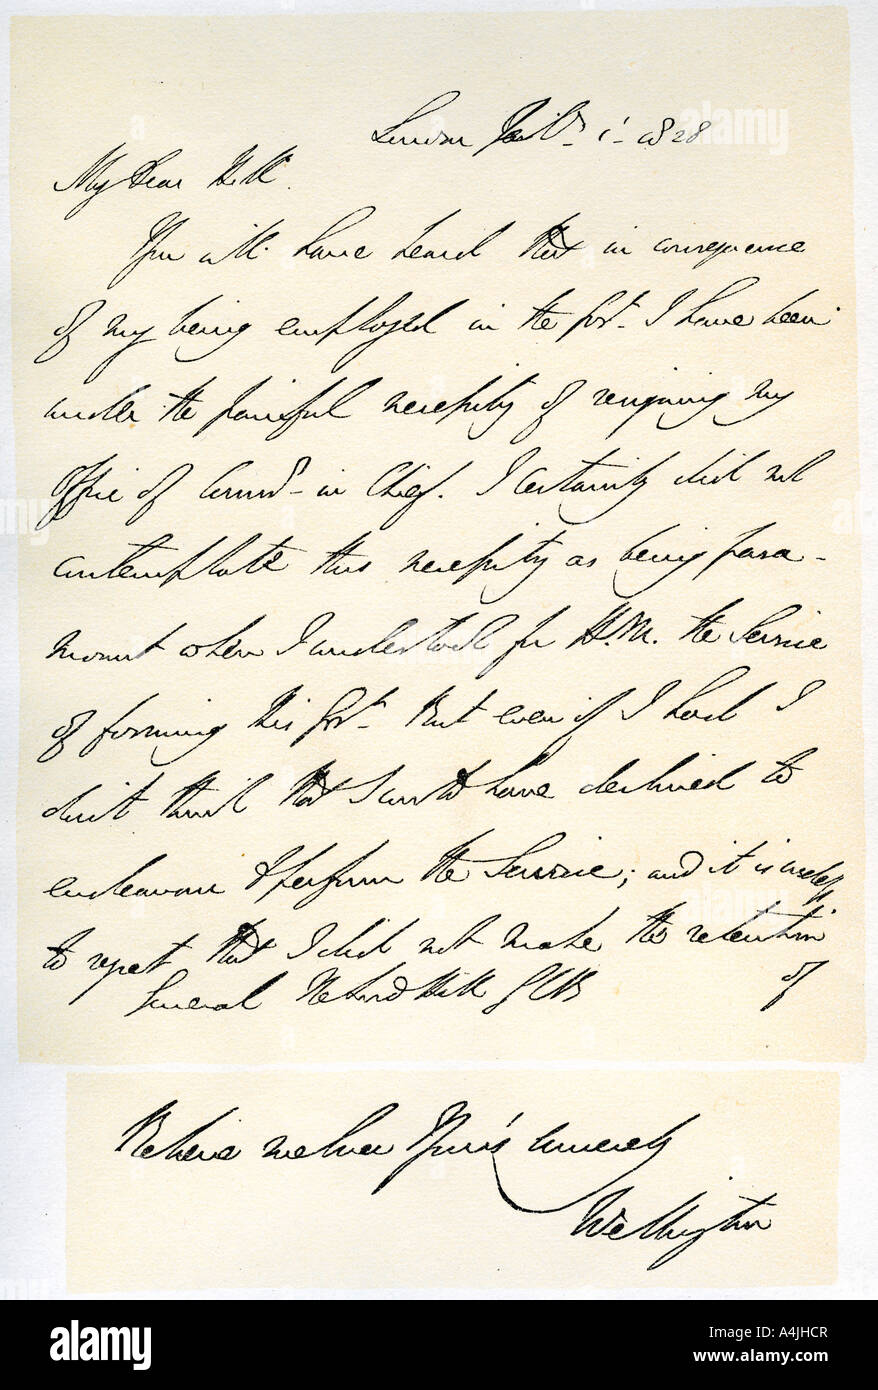 London Feb. 1st 1828
My Dear Hill.
You will have heard that in consequence
of my being employed in the Govt. I have been
under the painful necessity of resigning my
Office of Commr. in Chief. I certainly did not
contemplate this necessity as being para-
mount when I undertook for H.M. the Service
of forming his Govt. But even if I had I
don't think that I could have declined to
endeavour to perform the Service; and it is useless
to repeat that I did not make the retention
General The Lord Hill GCB of
Believe me Ever Yours Sincerely
Wellington
alamy
Image ID: A4JHCR
www.alamy.com